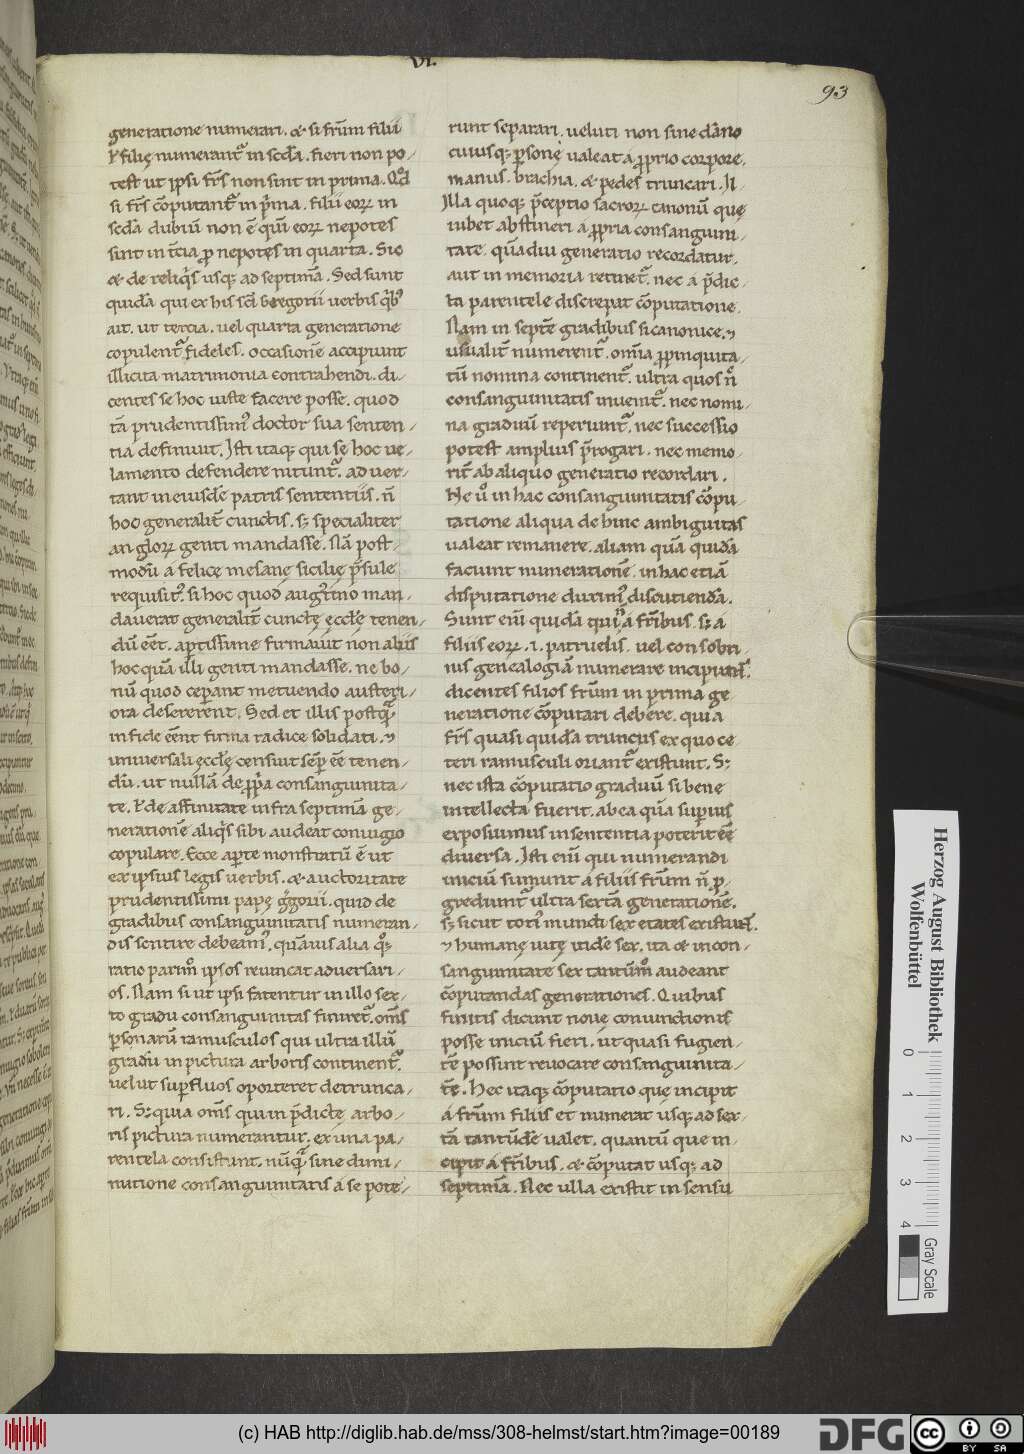 VI.
93
generatione numerari. & si fr̄um filii
ł filię numerant᷑ in sc̄da. fieri non po/
test ut ipsi fr̄s non sint in prima. Qd̄
si fr̄s cōputant᷑ in p̄ma. filii eoꝝ in
sc̄da dubiū non ē q̄m eoꝝ nepotes
sint in t̄cia. p̱nepotes in quarta. Sic
& de reliq̄s usq; ad septimā. Sed sunt
quidā qui ex his sc̄i Gregorii uerbis q̄b;
ait. ut tercia. uel quarta generatione
copulent᷑ fideles. occasionē accipiunt
illicita matrimonia contrahendi. di/
centes se hoc iuste facere posse. quod
tā prudentissim᷒ doctor sua senten/
tia definiuit. Isti itaq; qui se hoc ue/
lamento defendere nitunt᷑. aduer/
tant in eiusdē patris sententiis. n̄
hoc generalit̄ cunctis. sꝫ specialiter
angloꝝ genti mandasse. Nā post/
modū a felice mesanę sicilię p̄sule
requisit᷒. si hoc quod aug᷒tino man/
dauerat generalit̄ cunctę ęcclę tenen/
dū eēt. aptissime firmauit non aliis
hoc quā illi genti mandasse. ne bo/
nū quod ceperant metuendo austeri/
ora desererent. Sed et illis postq̄
in fide eēnt firma radice solidati. ⁊
uniuersali ęcclę censuit sēp eē tenen/
dū. ut nullā de p̱p̱a consanguinita/
te. ł de affinitate infra septimā ge/
nerationē aliq̄s sibi audeat coniugio
copulare. Ecce apte monstratū ē ut
ex ipsius legis uerbis. & auctoritate
prudentissimi papę g̊gorii. quid de
gradibus consanguinitatis numeran/
dis sentire debeam᷒. quāuis alia qꝫ
ratio parit̄ ipsos reuincat aduersari/
os. Nam si ut ipsi fatentur in illo sex/
to gradu consanguinitas finiret᷑. om̄s
p̱sonarū ramusculos qui ultra illū
gradū in pictura arboris continent᷑.
uelut sup̱fluos oporteret detrunca/
ri. Sꝫ quia om̄s qui in p̄dictę arbo/
ris pictura numerantur. ex una pa/
rentela consistunt. nūq̄ sine dimi/
nutione consanguinitatis a se pote/
runt separari. ueluti non sine dāno
cuiusq; p̱sonę ualeat a p̱prio corpore.
manus. brachia. & pedes truncari. N̄
Illa quoq; p̄ceptio sacroꝝ canonū quę
iubet abstineri a p̱pria consanguini/
tate. quādiu generatio recordatur.
aut in memoria retinet᷑. nec a p̄dic/
ta parentele discrepat cōputatione.
Nam in septē gradibus si canonice. ⁊
usualit̄ numerent᷑. om̄ia p̱pinquita/
tū nomina continent᷑. ultra quos n̄
consanguinitatis inuenit᷑. nec nomi/
na graduū reperiunt᷑. nec successio
potest amplius p̄rogari. nec memo/
rit̄ ab aliquo generatio recordari.
Ne u̇ in hac consanguinitatis cōpu/
tatione aliqua dehinc ambiguitas
ualeat remanere. aliam quā quidā
faciunt numerationē. in hac etiā
disputatione duxim᷒ discutiendā.
Sunt eni̅ quidā qui n̄ a fr̄ibus. sꝫ a
filiis eoꝝ .i. patruelis. uel consobri/
nis genealogiā numerare incipiunt.
dicentes filios fr̄um in prima ge
neratione cōputari debere. quia
fr̄s quasi quidā truncus ex quo ce
teri ramusculi oriant᷑ existunt. Sꝫ
nec ista cōputatio graduū si bene
intellecta fuerit. ab ea quā superius
exposuimus in sententia poterit eē
diuersa. Isti eni̅ qui numerandi
iniciū sumunt a filiis fr̄um n̄ p̱/
gredunt᷑ ultra sextā generationē.
sꝫ sicut toti᷒ mundi sex etates existunt.
⁊ humanę uitę itidē sex. ita & in con/
sanguinitate sex tantūm̊ audeant
cōputandas generationes. Quibus
finitis dicunt nouę coniunctionis
posse iniciū fieri. ut quasi fugien/
tē possint reuocare consanguinita/
tē. Hec itaq; cōputatio que incipit
a fr̄um filiis et numerat usq; ad sex/
tā tantūdē ualet. quantū que in/
cipit a fr̄ibus. & cōputat usq; ad
septimā. Nec ulla existit in sensu
Herzog August Bibliothek
Wolfenbüttel
0 1 2 3 4
Gray Scale
(c) HAB http://diglib.hab.de/mss/308-helmst/start.htm?image=00189
DFG
cc BY SA